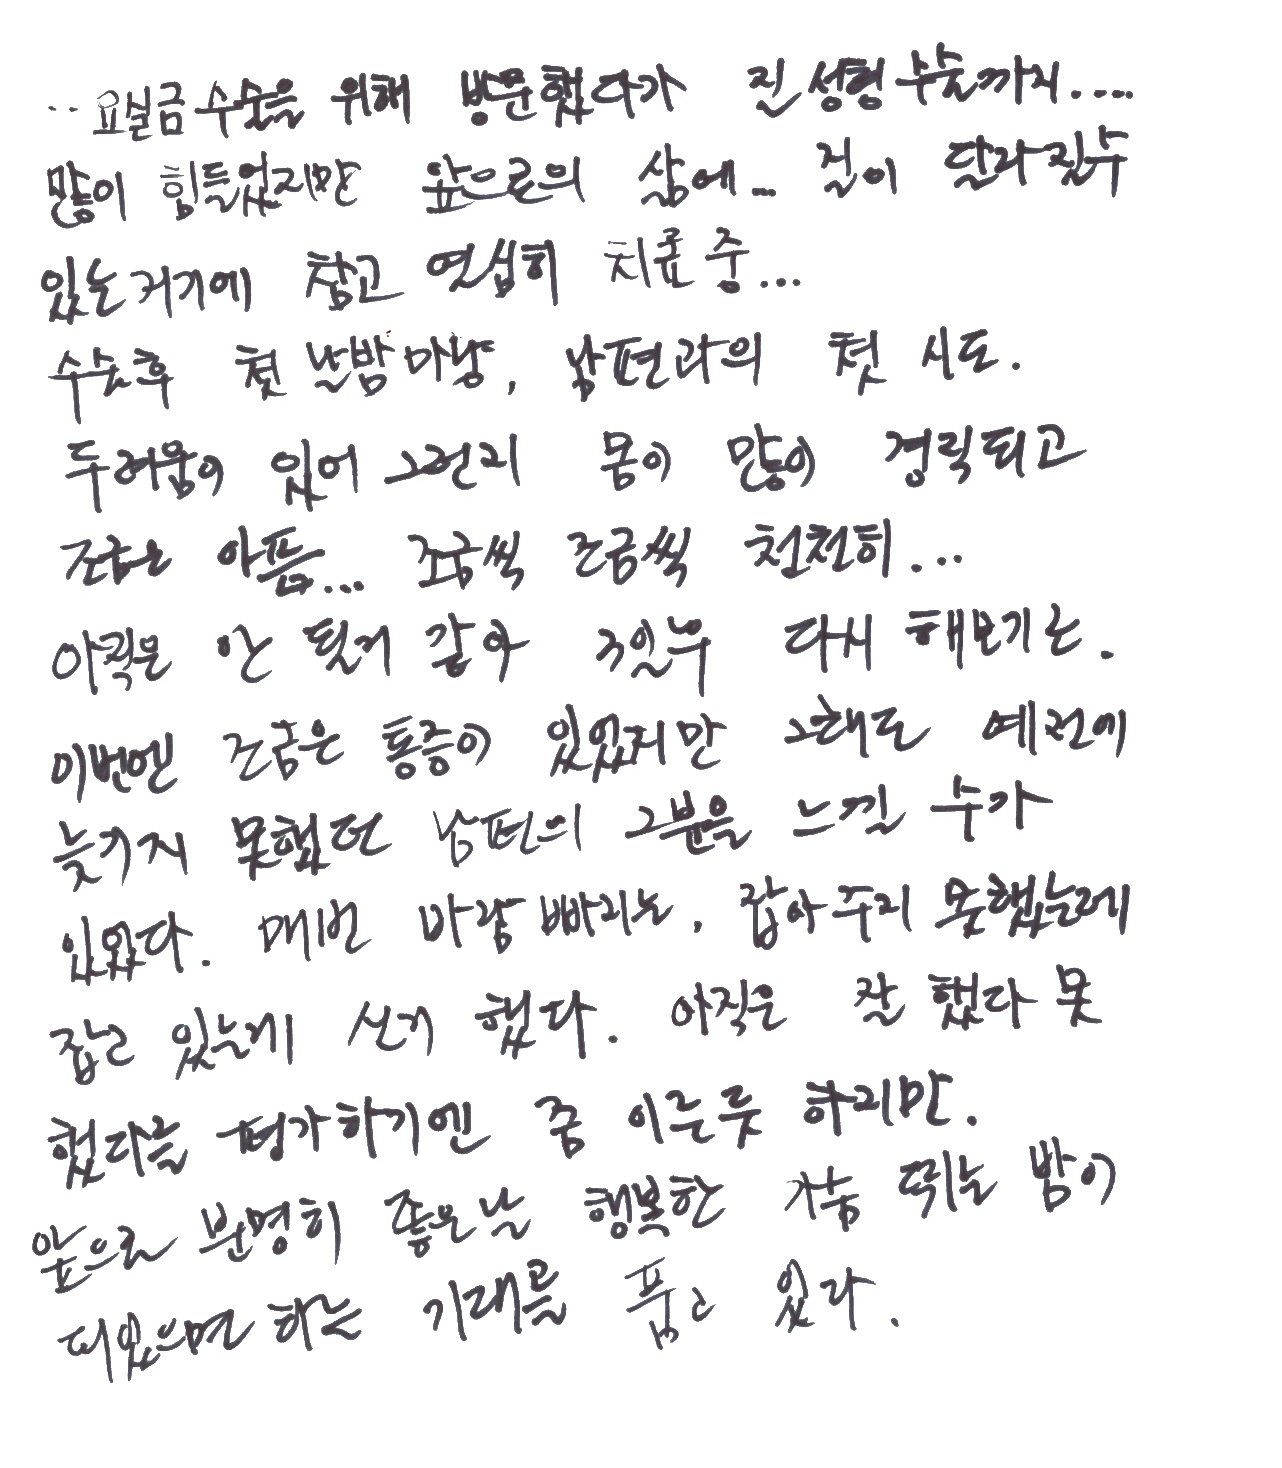 ..요실금 수술을 위해 방문했다가 진 성형 수술까지....
많이 힘들었지만 앞으로의 삶에... 길이 달라질수
있는거기에 참고 열심히 치료 중...
수술후 첫 날밤 마냥, 남편과의 첫 시도.
두려움이 있어 그런지 몸이 많이 경직되고
조금은 아픔... 조금씩 조금씩 천천히...
아직은 안 될거 같아 3일후 다시 해보기는.
이번엔 조금은 통증이 있었지만 그래도 예전에
늦기지 못했던 남편의 그분을 느낄 수가
있었다. 매번 바람 빠지는, 잡아주지 못했는데
잡고 있는게 신기 했다. 아직은 잘 했다 못
했다를 평가하기엔 좀 이른듯 하지만.
앞으로 분명히 좋은날 행복한 가슴 뛰는 밤이
되었으면 하는 기대를 품고 있다.